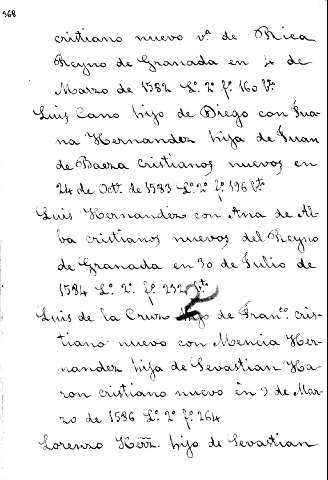 368
cristiano nuevo vº de Bica
Reyno de Granada en 4 de
Marzo de 1582 Lº 2º fº 160 vtº
Luis Cano hijo de Diego con Jua
na Hernandez hija de Juan
de Baeza cristianos nuevos en
24 de Octe. de 1583 Lº 2º fº 196 vtº
Luis Hernandez con Ana de Al
ba cristianos nuevos del Reyno
de Granada en 30 de Julio de
1584 Lº 2º fº 232 vtº
Luis de la Cruz hijo de Franº. cris-
tiano nuevo con Mencia Her-
nandez hija de Sevastian Ha
ron cristiano nuevo en 9 de Mar-
zo de 1586 Lº 2º fº 264
Lorenzo Herz. hijo de Sevastian